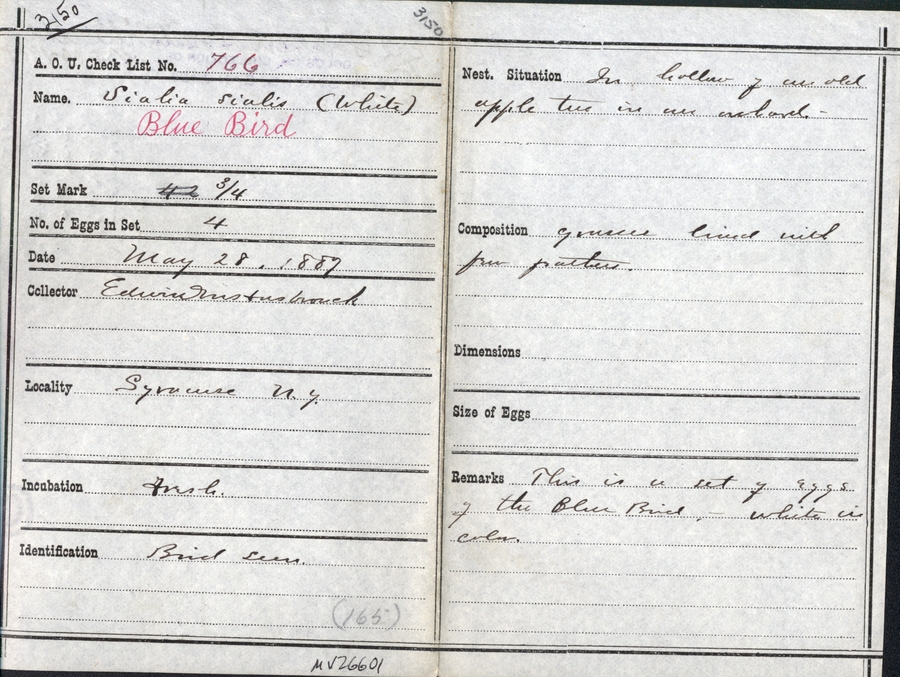 3/50
3150
A. O. U. Check List No. 766
Name. Sialia sialis (White)
Blue Bird
Set Mark 3/4
No. of Eggs in Set 4
Date May 28, 1887
Collector Edwin
Locality Syracuse N.Y.
Incubation Fresh.
Identification Bird seen.
(165)
MV26601
Nest. Situation In hollow of an old
apple tree in an orchard.-
Composition grasses lined with
few feathers.
Dimensions
Size of Eggs
Remarks This is a set of eggs
of the Blue Bird, - white in
color.